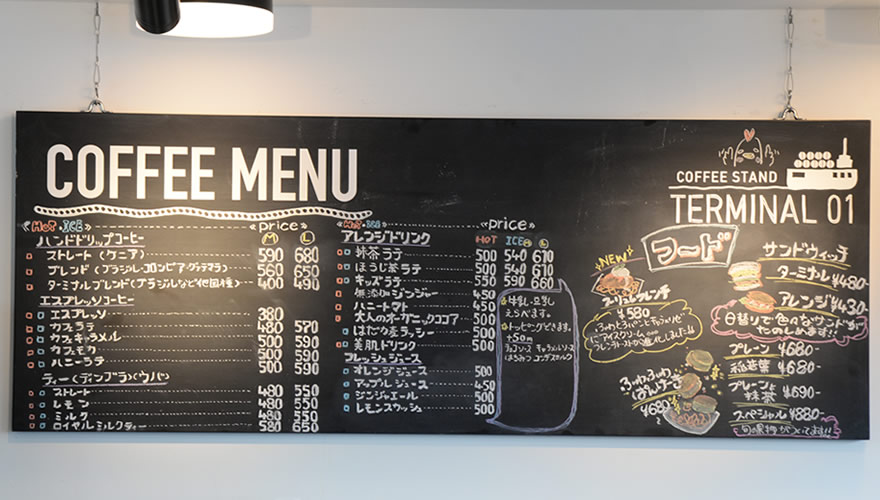 COFFEE MENU
HOT・ICE price M L
ハンドドリップコーヒー
ストレート (ケニア) 590 680
ブレンド (ブラジル・コロンビア・グァテマラ) 560 650
ターミナルブレンド (ブラジルなど他国種) 400 490
エスプレッソコーヒー
エスプレッソ 380
カフェラテ 480 570
カフェキャラメル 500 590
カフェモカ 500 590
ハニーラテ 500 590
ティー(ディンブラ)(ウバ)
ストレート 480 550
レモン 480 550
ミルク 480 550
ロイヤルミルクティー 580 650
HOT・ICE price
アレンジドリンク HOT ICE M L
抹茶ラテ 500 540 610
ほうじ茶ラテ 500 540 610
キッズラテ 550 590 660
無添加ジンジャー 450
ハニーミルク 450
大人のオーガニックココア 500
はだか麦ラッシー 500
美肌ドリンク 500
フレッシュジュース
オレンジジュース 500
アップルジュース 450
ジンジャエール 500
レモンスカッシュ 500
牛乳・豆乳
えらべます。
トッピングできます。
+50m
チョコソース キャラメルソース
はちみつ コンデンスミルク
COFFEE STAND
TERMINAL 01
フード
NEW
¥580
サンドウィッチ
ターミナル ¥480-
アレンジ ¥430-
日替りで色々なサンドがたのしめます!!
ふわふわ
ぱんけーき
¥680
プレーン ¥680-
和造葉 ¥680-
プレーンと
抹茶 ¥690-
スペシャル ¥880-
旬の果物がついてます!!